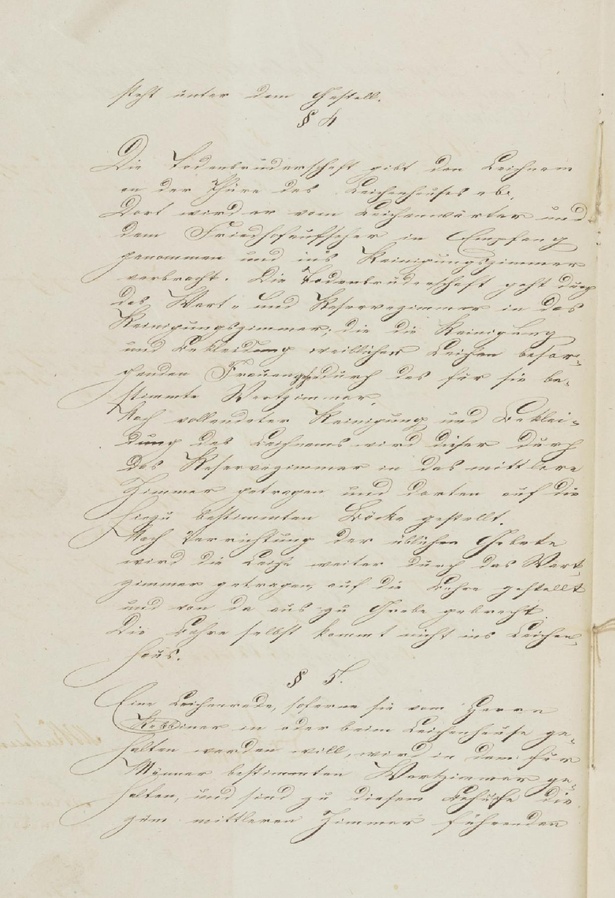 steht unter dem Gestell.
§ 4
Die Todenbruderschaft gibt den Leichnam
an der Thüre des Leichenhauses ab.
Dort wird er vom Leichenwärter und
dem Friedhofaufseher in Empfang
genommen und ins Reinigungszimmer
verbracht. Die Todenbruderschaft geht durch
das Wart- und Reservezimmer in das
Reinigungszimmer, die die Reinigung
und Bekleidung weiblicher Leichen besor-
genden Frauen durch das für sie be-
stimmte Wartzimmer.
Nach vollendeter Reinigung und Beklei-
dung des Leichnams wird dieser durch
das Reservezimmer in das mittlere
Zimmer getragen und dorten auf die
hiezu bestimmten Böcke gestellt.
Nach Verrichtung der üblichen Gebete
wird die Leiche weiter durch das Wart-
zimmer getragen, auf die Bahre gestellt
und von da aus zu Grabe gebracht.
Die Bahre selbst kommt nicht ins Leichen-
haus.
§ 5.
Eine Leichenrede, soferne sie vom Herrn
Rabbiner in oder beim Leichenhause ge-
halten werden will, wird in dem für
Männer bestimmten Wartzimmer ge-
halten, und sind zu diesem Behufe die
zum mittleren Zimmer führenden